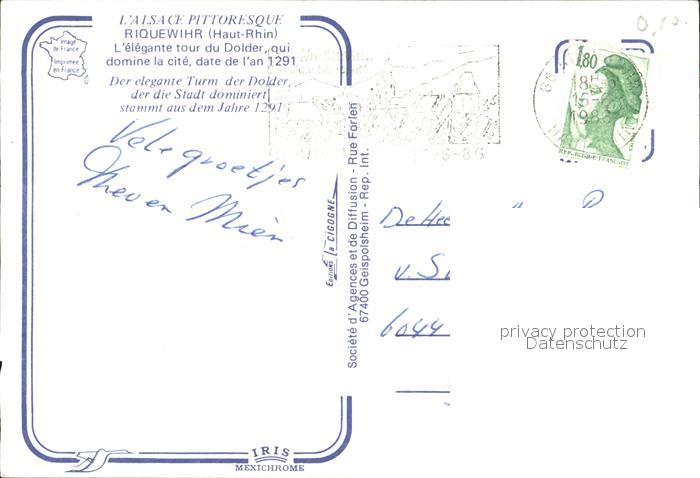 L'ALSACE PITTORESQUE
RIQUEWIHR (Haut-Rhin)
L'élégante tour du Dolder, qui
domine la cité, date de l'an 1291
Der elegante Turm der Dolder,
der die Stadt dominiert
stammt aus dem Jahre 1291
Image
de France
Imprimée
en France
Vele groetjes
Mien
Editions la CIGOGNE
Société d'Agences et de Diffusion - Rue Forlen
67400 Geispolsheim - Rep. Int.
IRIS
MEXICHROME
1,80
REPUBLIQUE FRANÇAISE
De Hee
6044
privacy protection
Datenschutz